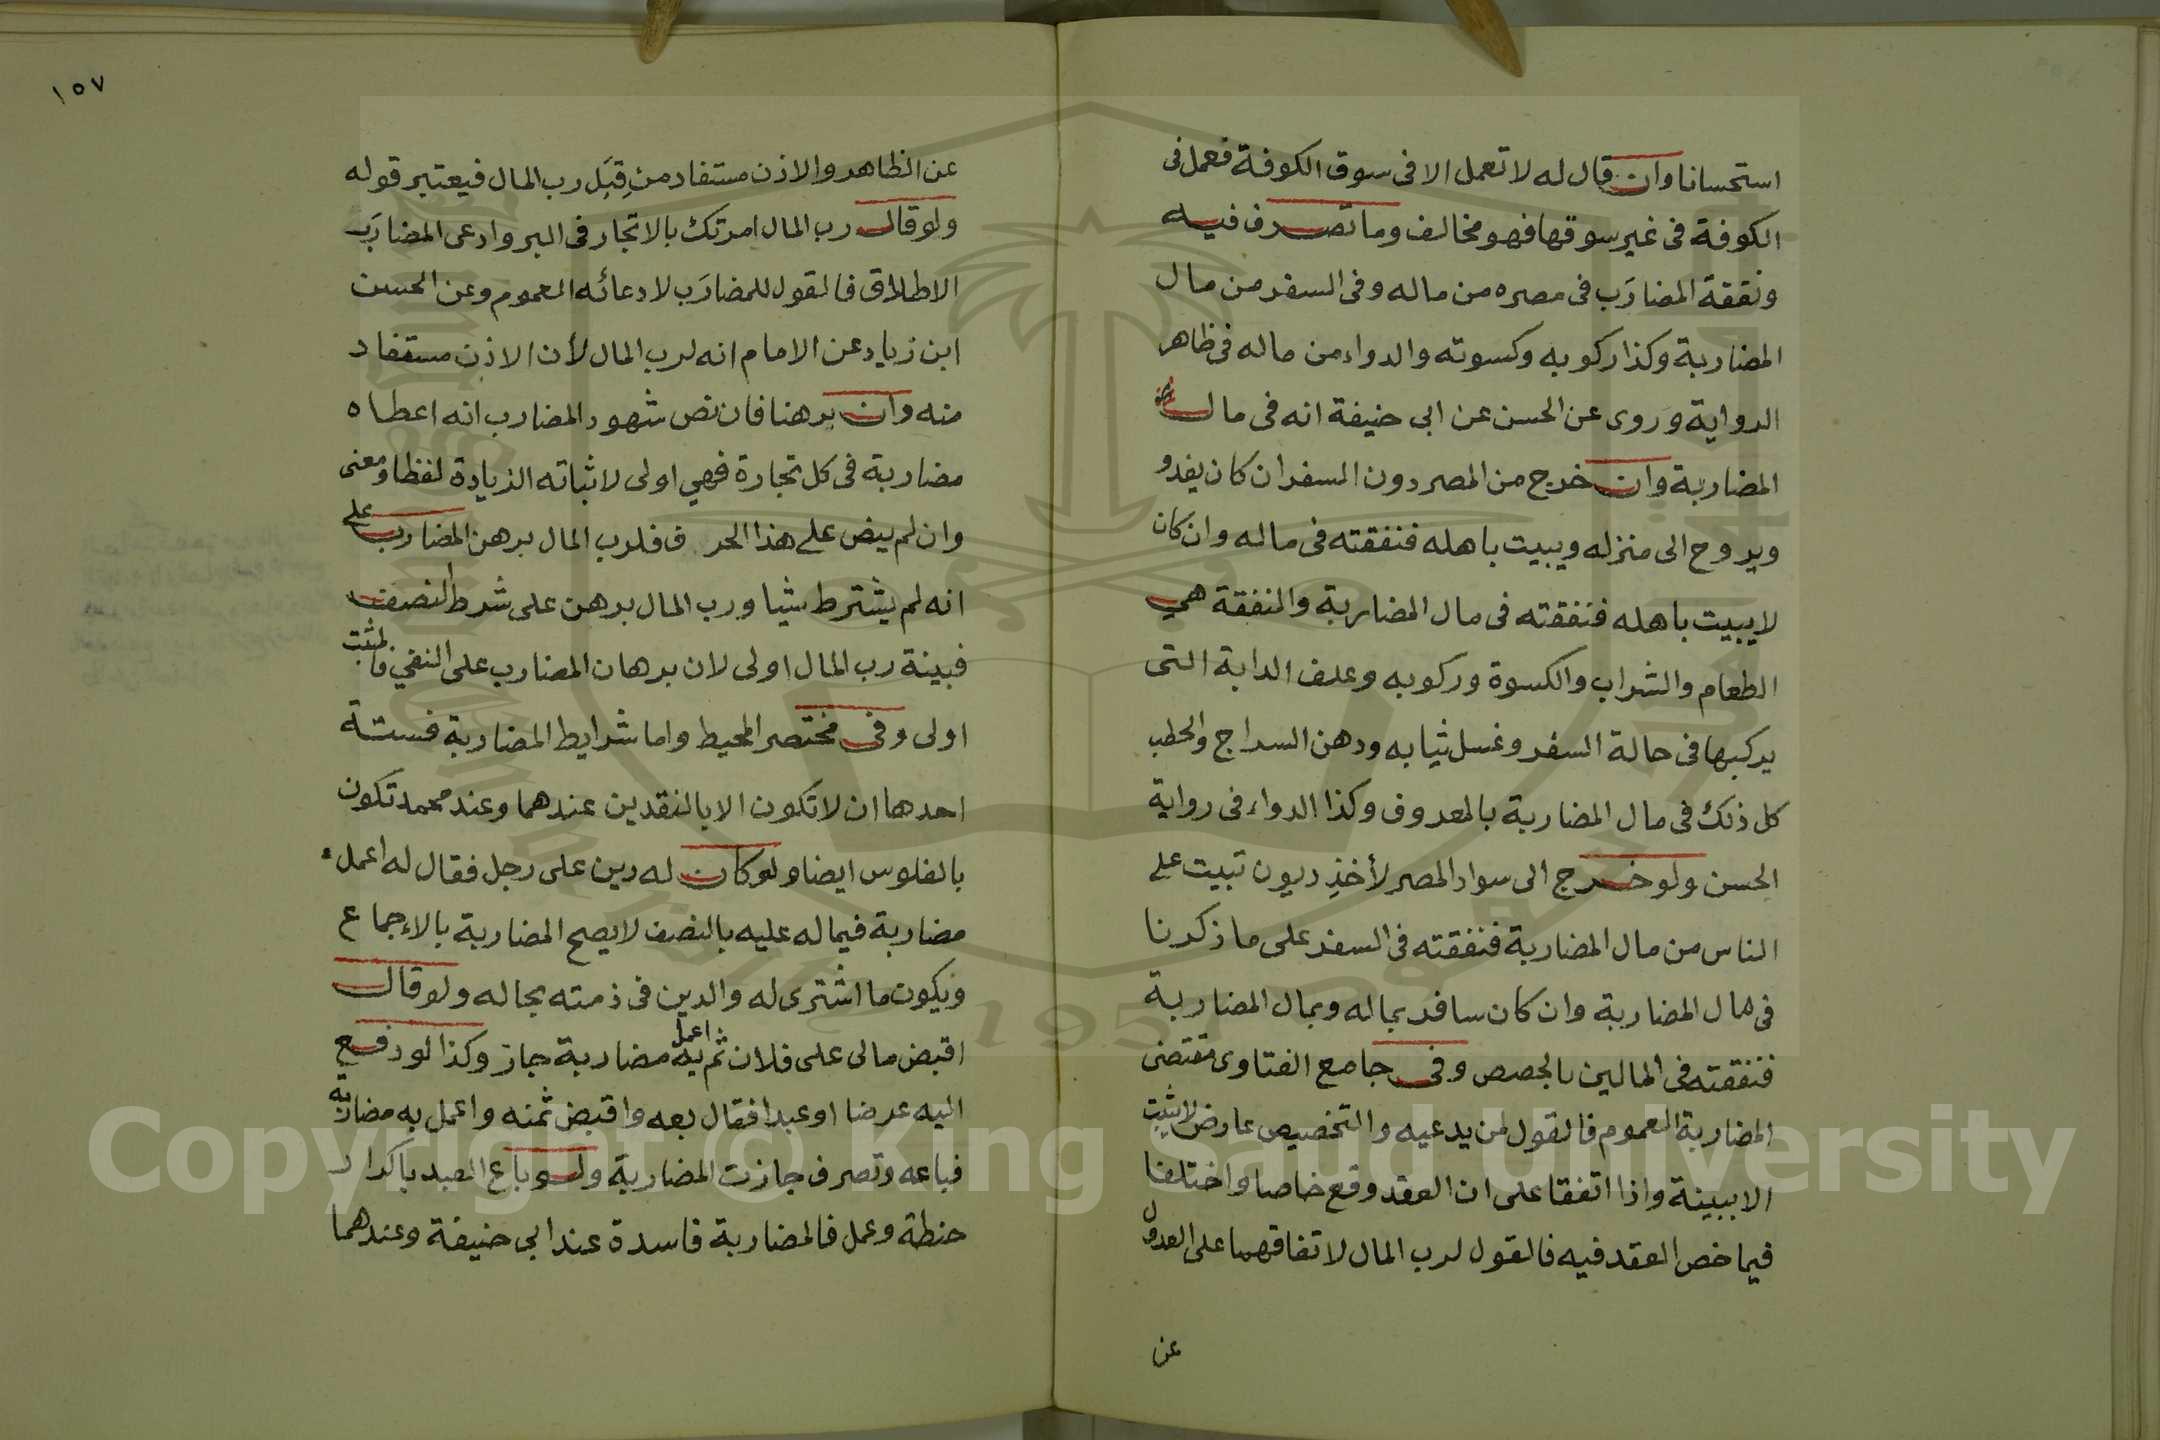 استحسانا وان قال له لا تعمل الا فى سوق الكوفة فعمل فى
الكوفة فى غير سوقها فهو مخالف وما تصرف فيه
ونفقة المضارَب فى مصره من ماله وفى السفر من مال
المضاربة وكذا ركوبه وكسوته والدواء من ماله فى ظاهر
الرواية وروى عن الحسن عن ابى حنيفة انه فى مال
المضاربة وان خرج من المصر دون السفر ان كان يغدو
ويروح الى منزله ويبيت باهله فنفقته فى ماله وان كان
لا يبيت باهله فنفقته فى مال المضاربة والنفقة هي
الطعام والشراب والكسوة وركوبه وعلف الدابة التى
يركبها فى حالة السفر وغسل ثيابه ودهن السراج والحطب
كل ذلك فى مال المضاربة بالمعروف وكذا الدواء فى رواية
الحسن ولو خرج الى سواد المصر لأخذِ ديون تبيت على
الناس من مال المضاربة فنفقته فى السفر على ما ذكرنا
فى مال المضاربة وان كان سافر بماله وبمال المضاربة
فنفقته فى المالين بالحصص وفى جامع الفتاوى مقتضى
المضاربة العموم فالقول لمن يدعيه والتخصيص عارض لا يثبت
الا ببينة واذا اتفقا على ان العقد وقع خاصا واختلفا
فيما خص العقد فيه فالقول لرب المال لاتفاقهما على العدول
عن
١٥٧
عن الظاهر والاذن مستفاد من قِبَلِ رب المال فيعتبر قوله
ولو قال رب المال امرتك بالاتجار فى البر وادعى المضارَب
الاطلاق فالقول للمضارَب لادعائه العموم وعن الحسن
ابن زياد عن الامام انه لرب المال لأن الاذن مستفاد
منه وان برهنا فان نص شهود المضارب انه اعطاه
مضاربة فى كل تجارة فهي اولى لاثباته الزيادة لفظا ومعنى
وان لم ينص على هذا الحرف فلرب المال برهن المضارب على
انه لم يشترط شيا ورب المال برهن على شرط النصف
فبينة رب المال اولى لان برهان المضارب على النفي فالمثبت
اولى وفى مختصر المحيط واما شرايط المضاربة فستة
احدها ان لا تكون الا بالنقدين عندهما وعند محمد تكون
بالفلوس ايضا ولو كان له دين على رجل فقال له اعمل
مضاربة فيما له عليه بالنصف لا يصح المضاربة بالاجماع
ويكون ما اشترى له والدين فى ذمته بحاله ولو قال
اقبض مالى على فلان ثم اعمل به مضاربة جاز وكذا لو دفع
اليه عرضا او عبدا فقال بعه واقبض ثمنه واعمل به مضاربة
فباعه وتصرف جازت المضاربة ولو باع العبد باكرار
حنطة وعمل فالمضاربة فاسدة عند ابي حنيفة وعندهما
Copyright © King Saud University
1957